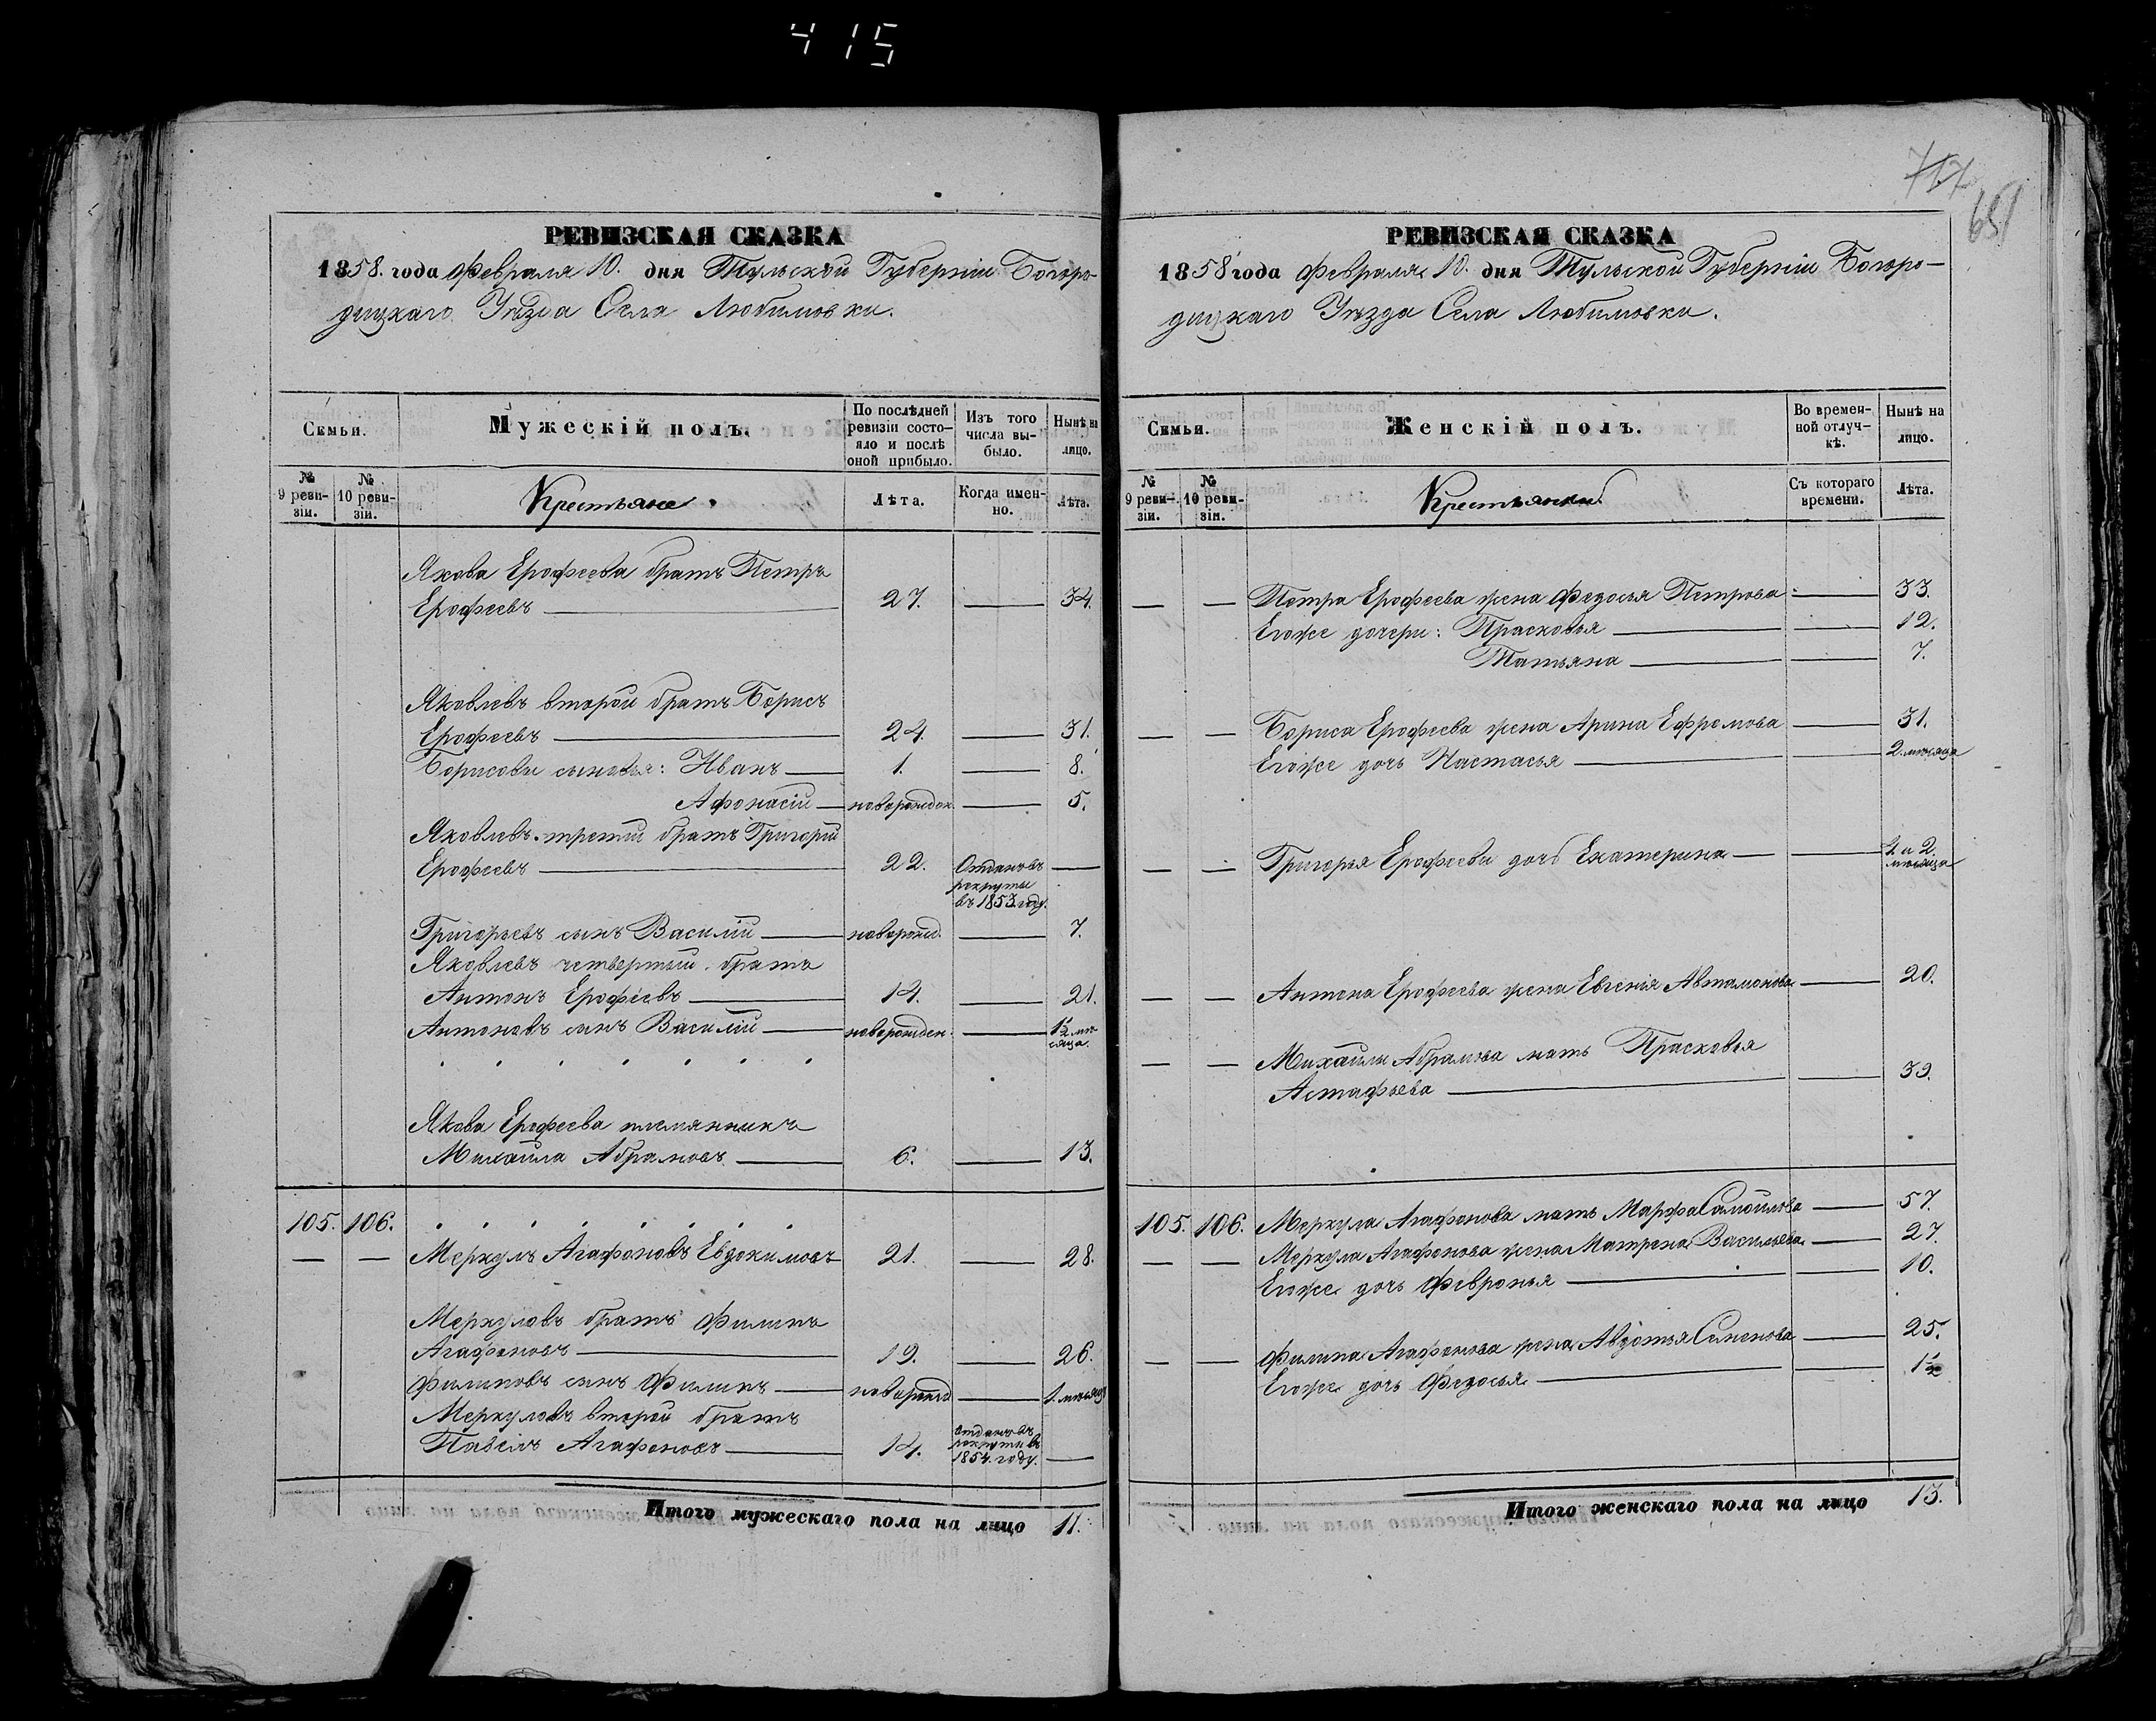 415
717
651
РЕВИЗСКАЯ СКАЗКА
1858. года Февраля 10. дня Тульской Губерніи Богоро-
дицкаго Уѣзда Села Любимовки.
Семьи.
Мужескій полъ.
По послѣдней ревизіи состо-яло и послѣ оной прибыло.
Изъ того числа вы-было.
Нынѣ на лицо.
№ 9 реви-зіи.
№ 10 реви-зіи.
Крестьяне
Лѣта.
Когда имен-но.
Лѣта.
Якова Ерофеева братъ Петръ
Ерофеевъ 27. 34.
Яковлевъ второй братъ Борисъ
Ерофеевъ 24. 31.
Борисовы сыновья: Иванъ 1. 8.
Афонасій новорожден. 5.
Яковлевъ третій братъ Григорій
Ерофеевъ 22. Отданъ въ рекруты въ 1853 году.
Григорьевъ сынъ Василій новорожд. 7.
Яковлевъ четвертый братъ
Антонъ Ерофеевъ 14. 21.
Антоновъ сынъ Василій новорожден. 1½ мѣ-сяца.
Якова Ерофеева племянникъ
Михайла Абрамовъ 6. 13.
105. 106.
Меркулъ Агафоновъ Евдокимовъ 21. 28.
Меркуловъ братъ Филипъ
Агафоновъ 19. 26.
Филиповъ сынъ Филипъ новорожд. 1. мѣсяцъ
Меркуловъ второй братъ
Павелъ Агафоновъ 14. отданъ въ рекруты въ 1854. году.
Итого мужескаго пола на лицо 11.
РЕВИЗСКАЯ СКАЗКА
1858 года Февраля 10. дня Тульской Губерніи Богоро-
дицкаго Уѣзда Села Любимовки.
Семьи.
Женскій полъ.
Во времен-ной отлуч-кѣ.
Нынѣ на лицо.
№ 9 реви-зіи.
№ 10 реви-зіи.
Крестьянки
Съ котораго времени.
Лѣта.
Петра Ерофеева жена Федосья Петрова 33.
Егоже дочери: Прасковья 12.
Татьяна 7.
Бориса Ерофеева жена Арина Ефремова 31.
Егоже дочь Настасья 2. мѣсяца
Григорья Ерофеева дочь Екатерина 1 и 2 мѣсяца
Антона Ерофеева жена Евгенія Автамонова 20.
Михайлы Абрамова мать Прасковья
Астафьева 39.
105. 106. Меркула Агафонова мать Марфа Самойлова 57.
Меркула Агафонова жена Матрена Васильева 27.
Егоже дочь Февронья 10.
Филипа Агафонова жена Авдотья Семенова 25.
Егоже дочь Федосья 1½
Итого женскаго пола на лицо 13.